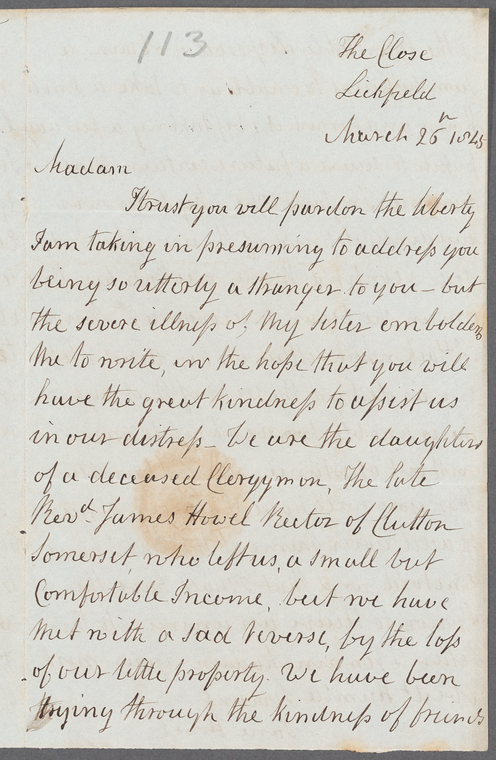 113
The Close
Lichfield
March 26th 1845
Madam
I trust you will pardon the liberty
I am taking in presuming to address you
being so utterly a stranger to you - but
the severe illness of my Sister emboldens
me to write, in the hope that you will
have the great kindness to assist us
in our distress - We are the daughters
of a deceased Clergyman, The late
Revd. James Howel Rector of Clutton
Somerset, who left us, a small but
Comfortable Income, but we have
met with a sad reverse, by the loss
of our little property. We have been
trying through the kindness of friends